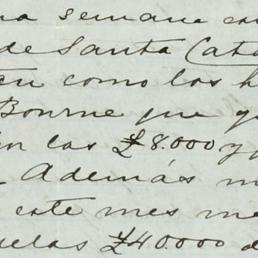 na semana en
de Santa Cata
en como los h
Bourne que q
n las £8.000 y
Además m
este mes me
uelas £40000 d